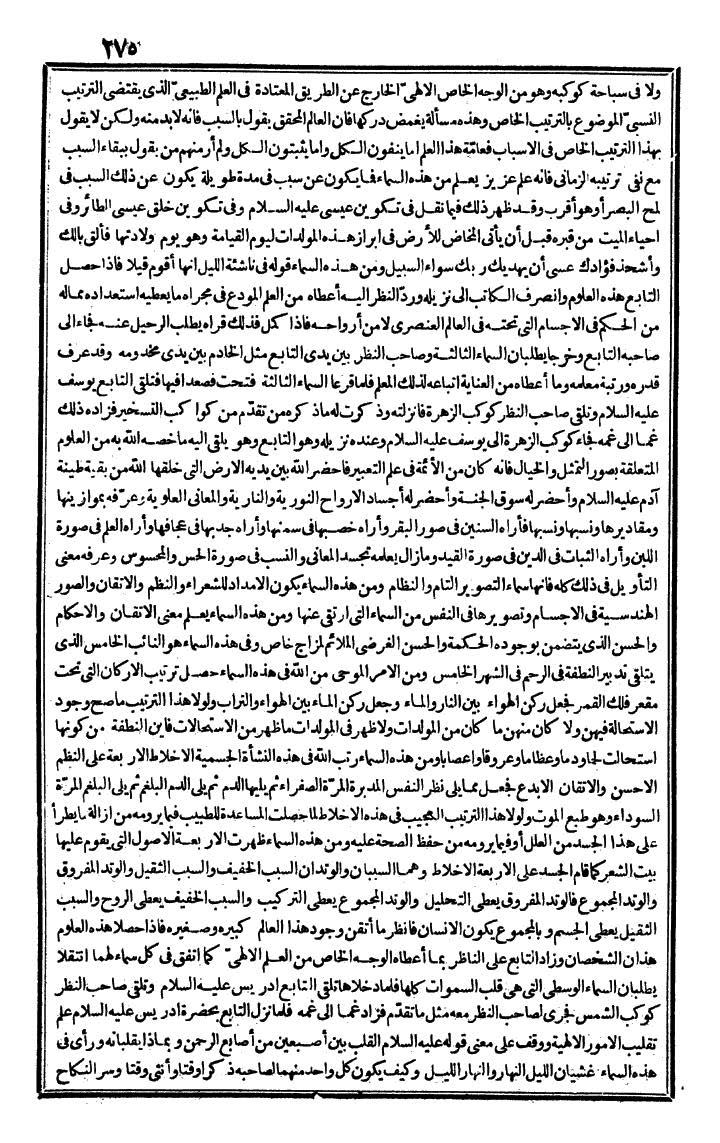 ٢٧٥
ولا فى سباحة كوكبه وهو من الوجه الخاص الالهىّ الخارج عن الطريق المعتادة فى العلم الطبيعىّ الذى يقتضى الترتيب
النسبىّ الموضوع بالترتيب الخاص وهذه مسألة يغمض دركها فان العالم المحقق يقول بالسبب فانه لابد منه ولكن لا يقول
بهذا الترتيب الخاص فى الاسباب فعامّة هذا العلم اما ينفون الكل واما يثبتون الكل ولم أر منهم من يقول ببقاء السبب
مع نفى ترتيبه الزمانى فانه علم عزيز يعلم من هذه السماء فما يكون عن سبب فى مدة طويلة يكون عن ذلك السبب فى
لمح البصر أو هو أقرب وقد ظهر ذلك فيما نقل فى تكوين عيسى عليه السلام وفى تكوين خلق عيسى الطائر وفى
احياء الميت من قبره قبل أن يأتى المخاض للأرض فى ابراز هذه المولدات ليوم القيامة وهو يوم ولادتها فألق بالك
وأشحذ فؤادك عسى أن يهديك ربك سواء السبيل ومن هذه السماء قوله فى ناشئة الليل انها أقوم قيلا فاذا حصل
التابع هذه العلوم وانصرف الكاتب الى نزيله وردّ النظر اليه أعطاه من العلم المودع فى مجراه ما يعطيه استعداده مماله
من الحكم فى الاجسام التى تحته فى العالم العنصرى لا من أرواحه فاذا كمل فذلك قراه يطلب الرحيل عنه فجاء الى
صاحبه التابع وخرجا يطلبان السماء الثالثة وصاحب النظر بين يدى التابع مثل الخادم بين يدى مخدومه وقد عرف
قدره ورتبة معلمه وما أعطاه من العناية اتباعه لذلك المعلم فلما قرعا السماء الثالثة فتحت فصعدا فيها فتلقى التابع يوسف
عليه السلام وتلقى صاحب النظر كوكب الزهرة فانزلته وذكرت له ماذكره من تقدّم من كواكب التسخير فزاده ذلك
غما الى غمه فجاء كوكب الزهرة الى يوسف عليه السلام وعنده نزيله وهو التابع وهو يلقى اليه ما خصه الله به من العلوم
المتعلقة بصور التمثل والخيال فانه كان من الأئمة فى علم التعبير فاحضر الله بين يديه الارض التى خلقها الله من بقية طينة
آدم عليه السلام وأحضر له سوق الجنة وأحضر له أجساد الارواح النورية والنارية والمعانى العلوية وعرّفه بموازينها
ومقاديرها ونسبها ونسبها فأراه السنين فى صور البقر وأراه خصبها فى سمنها وأراه جدبها فى عجافها وأراه العلم فى صورة
اللبن وأراه الثبات فى الدين فى صورة القيد ومازال يعلمه تجسد المعانى والنسب فى صورة الحس والمحسوس وعرفه معنى
التأويل فى ذلك كله فانها سماء التصوير التام والنظام ومن هذه السماء يكون الامداد للشعراء والنظم والاتقان والصور
الهندسية فى الاجسام وتصويرها فى النفس من السماء التى ارتقى عنها ومن هذه السماء يعلم معنى الاتقان والاحكام
والحسن الذى يتضمن بوجوده الحكمة والحسن الغرضى الملائم لمزاج خاص وفى هذه السماء هو النائب الخامس الذى
يتلقى تدبير النطفة فى الرحم فى الشهر الخامس ومن الامر الموحى من الله فى هذه السماء حصل ترتيب الاركان التى تحت
مقعر فلك القمر فجعل ركن الهواء بين النار والماء وجعل ركن الماء بين الهواء والتراب ولولا هذا الترتيب ماصح وجود
الاستحالة فيهن ولا كان منهن ما كان من المولدات ولا ظهر فى المولدات ماظهر من الاستحالات فاين النطفة من كونها
استحالت لحما ودما وعظاما وعروقا وأعصابا ومن هذه السماء رتب الله فى هذه النشأة الجسمية الاخلاط الاربعة على النظم
الاحسن والاتقان الابدع فجعل مما يلى نظر النفس المدبرة المرّة الصفراء ثم يليها الدم ثم يلى الدم البلغم ثم يلى البلغم المرّة
السوداء وهو طبع الموت ولولا هذا الترتيب العجيب فى هذه الاخلاط لما حصلت المساعدة للطبيب فيما يرومه من ازالة ما يطرأ
على هذا الجسد من العلل أو فيما يرومه من حفظ الصحة عليه ومن هذه السماء ظهرت الاربعة الاصول التى يقوم عليها
بيت الشعر كما قام الجسد على الاربعة الاخلاط وهما السببان والوتدان السبب الخفيف والسبب الثقيل والوتد المفروق
والوتد المجموع فالوتد المفروق يعطى التحليل والوتد المجموع يعطى التركيب والسبب الخفيف يعطى الروح والسبب
الثقيل يعطى الجسم وبالمجموع يكون الانسان فانظر ما أتقن وجود هذا العالم كبيره وصغيره فاذا حصلا هذه العلوم
هذان الشخصان وزاد التابع على الناظر بما أعطاه الوجه الخاص من العلم الالهىّ كما اتفق فى كل سماء لهما انتقلا
يطلبان السماء الوسطى التى هى قلب السموات كلها فلما دخلاها تلقى التابع ادريس عليه السلام وتلقى صاحب النظر
كوكب الشمس فجرى لصاحب النظر معه مثل ما تقدّم فزاد غما الى غمه فلما نزل التابع بحضرة ادريس عليه السلام علم
تقليب الامور الالهية ووقف على معنى قوله عليه السلام القلب بين أصبعين من أصابع الرحمن وبماذا يقلبانه ورأى فى
هذه السماء غشيان الليل النهار والنهار الليل وكيف يكون كل واحد منهما لصاحبه ذكرا وقتا وأنثى وقتا وسر النكاح